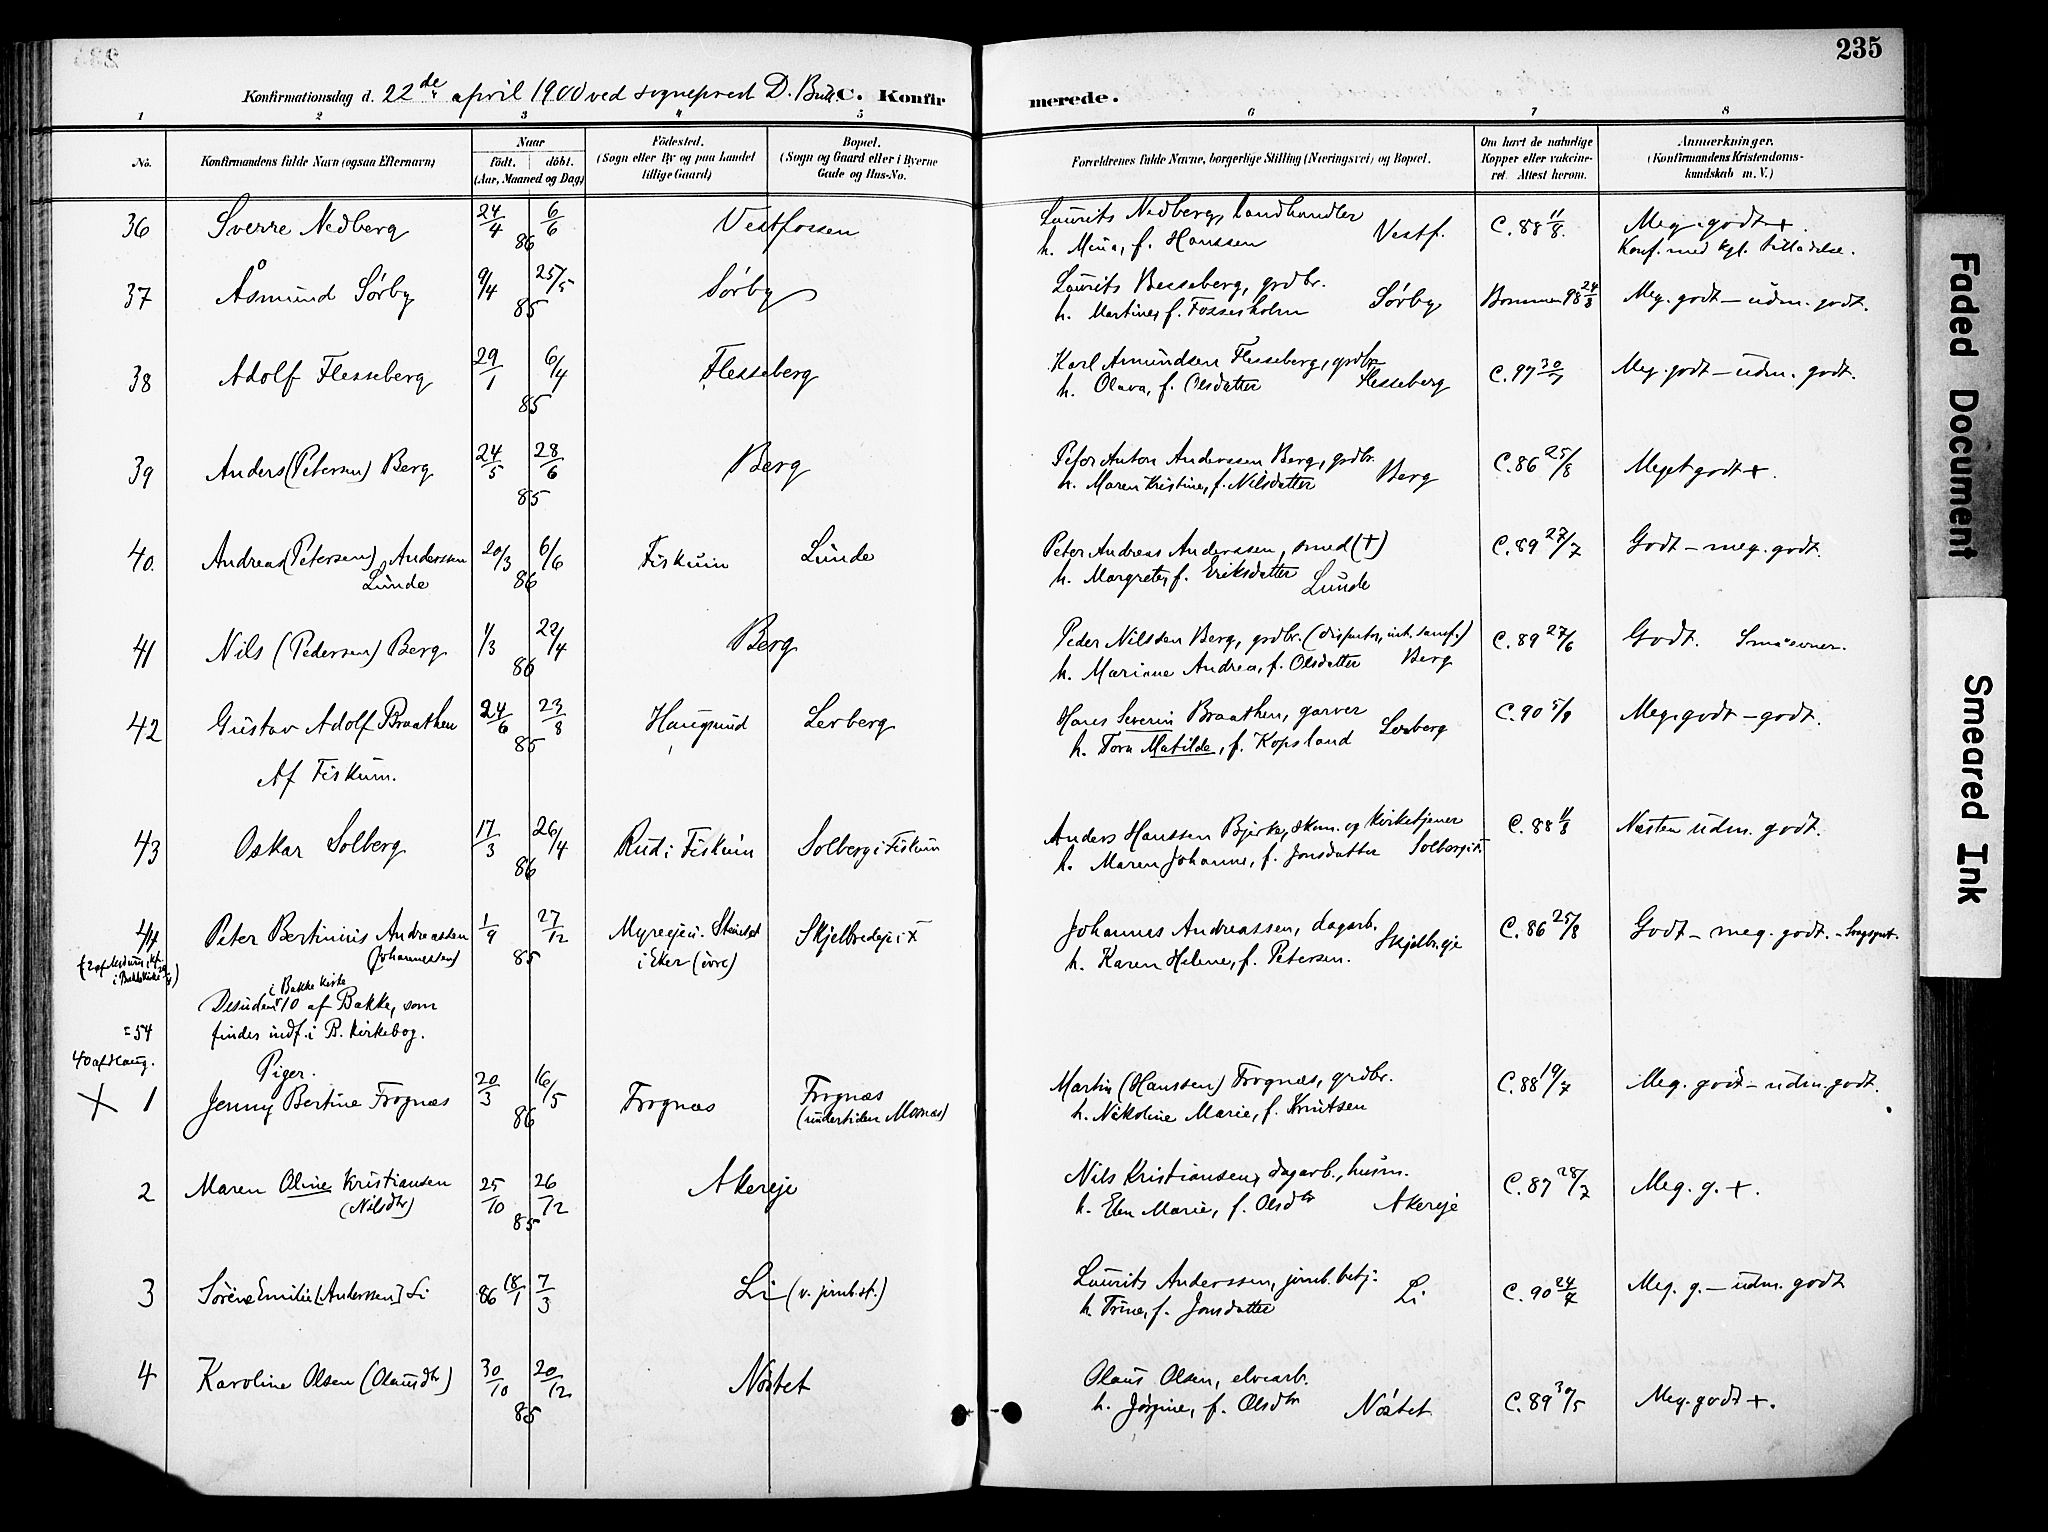 235
Konfirmationsdag d. 22de april 1900 ved sogneprest D. Bull. C. Konfirmerede.
1 2 3 4 5 6 7 8
No. Konfirmandens fulde Navn (ogsaa Efternavn) Naar födt. döbt. (Aar, Maaned og Dag) Födested. (Sogn eller By og paa Landet tillige Gaard) Bopæl. (Sogn og Gaard eller i Byerne Gade og Hus-No. Forældrenes fulde Navne, borgerlige Stilling (Næringsvei) og Bopæl. Om havt de naturlige Kopper eller vaccineret. Attest herom. Anmærkninger. (Konfirmandens Kristendomskundskab m. V.)
36 Sverre Nedberg 24/4 6/6 86 Vestfossen Laurits Nedberg, landhandler Vestf. C. 88 11/8. Meg. godt +.
h. Mina, f. Hanssen Konf. med kgl. tilladelse.
37 Åsmund Sørby 9/4 25/5 85 Sørby Laurits Besseberg, grdbr. Sørby 98 24/3 Meg. godt – udm. godt.
h. Martine, f. Fossesholm
38 Adolf Flesseberg 29/1 6/4 85 Flesseberg Karl Amundsen Flesseberg, grdbr. C. 97 30/7 Meg. godt – udm. godt.
h. Olava, f. Olsdatter Flesseberg
39 Anders (Petersen) Berg 24/5 28/6 85 Berg Peter Anton Anderssen Berg, grdbr. Berg C. 86 25/8 Meget godt +.
h. Maren Kristine, f. Nilsdatter
40. Andreas (Petersen) Anderssen 20/3 6/6 86 Fiskum Lunde Peter Andreas Anderssen, smed (†) C. 89 27/7 Godt – meg. godt.
Lunde h. Margrete, f. Eriksdatter Lunde
41 Nils (Pedersen) Berg 1/3 22/4 86 Berg Peder Nilssen Berg, grdbr. C. 89 27/6 Godt.
h. Mariane Andrea, f. Olsdatter Berg
42 Gustav Adolf Braathen 24/6 23/8 85 Haugsund Lerberg Hans Severin Braathen, garver Lerberg C. 90 5/9 Meg. godt – godt.
h. Tora Matilde, f. Kopsland
Af Fiskum.
43 Oskar Solberg 17/3 26/4 86 Rud i Fiskum Solberg i Fiskum Anders Hanssen Bjerke, skom. og kirketjener C. 88 11/8 Næsten udm. godt.
h. Maren Johanne, f. Jonsdatter Solberg i F.
44 Peter Bertinius Andreassen 1/9 27/12 85 i Eker (øvre) Skjelbredeje i F Johannes Andreassen, dagarb. Skjelbr.eje C. 86 25/8 Godt – meg. godt.
(Johannessen) h. Karen Helene, f. Petersen.
i Bakke kirke
Desuden 10 af Bakke, som
= 54 findes indf. i B. Kirkebog.
40 af Haug.
Piger.
1 Jenny Bertine Frognæs 20/3 16/5 86 Frognæs Frognæs Martin (Hanssen) Frognæs, grdbr. C. 88 19/7 Meg. godt – udm. godt.
(undertiden Mornæs) h. Nikoline Marie, f. Knutsen
2 Maren Oline Kristiansen 25/10 26/12 85 Akereje Nils Kristiansen, dagarb., husm. C. 87 28/7 Meg. g. +.
(Nilsdtr) h. Elen Marie, f. Olsdtr Akereje
3 Sørine Emilie [Anderssen] Li 86 18/1 7/3 Li (v. jernb.st.) Laurits Anderssen, jernb.betj. Li C. 90 24/4 Meg. g. – udm. godt
h. Trine, f. Jonsdatter
4 Karoline Olsen (Olausdtr) 30/10 20/12 85 Nøstet Olaus Olsen, elvearb. C. 89 30/5 Meg. godt +.
h. Jørgine, f. Olsdtr Nøstet
Faded Document
Smeared Ink